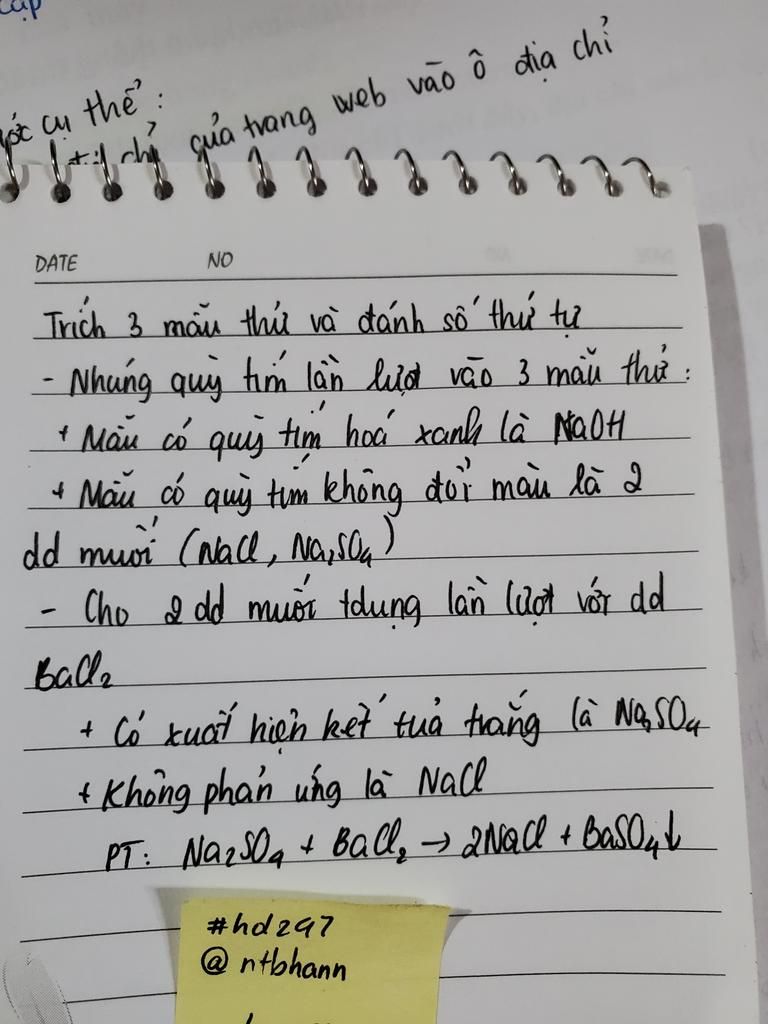 cấp
cụ thể:
của trang web vào ô địa chỉ
DATE NO
Trích 3 mẫu thử và đánh số thứ tự
- Nhúng quỳ tím lần lượt vào 3 mẫu thử:
+ Mẫu có quỳ tím hoá xanh là NaOH
+ Mẫu có quỳ tím không đổi màu là 2
dd muối (NaCl, Na₂SO₄)
- Cho 2 dd muối tdụng lần lượt với dd
BaCl₂
+ Có xuất hiện kết tủa trắng là Na₂SO₄
+ Không phản ứng là NaCl
PT: Na₂SO₄ + BaCl₂ → 2NaCl + BaSO₄↓
#hd297
@ntbhann